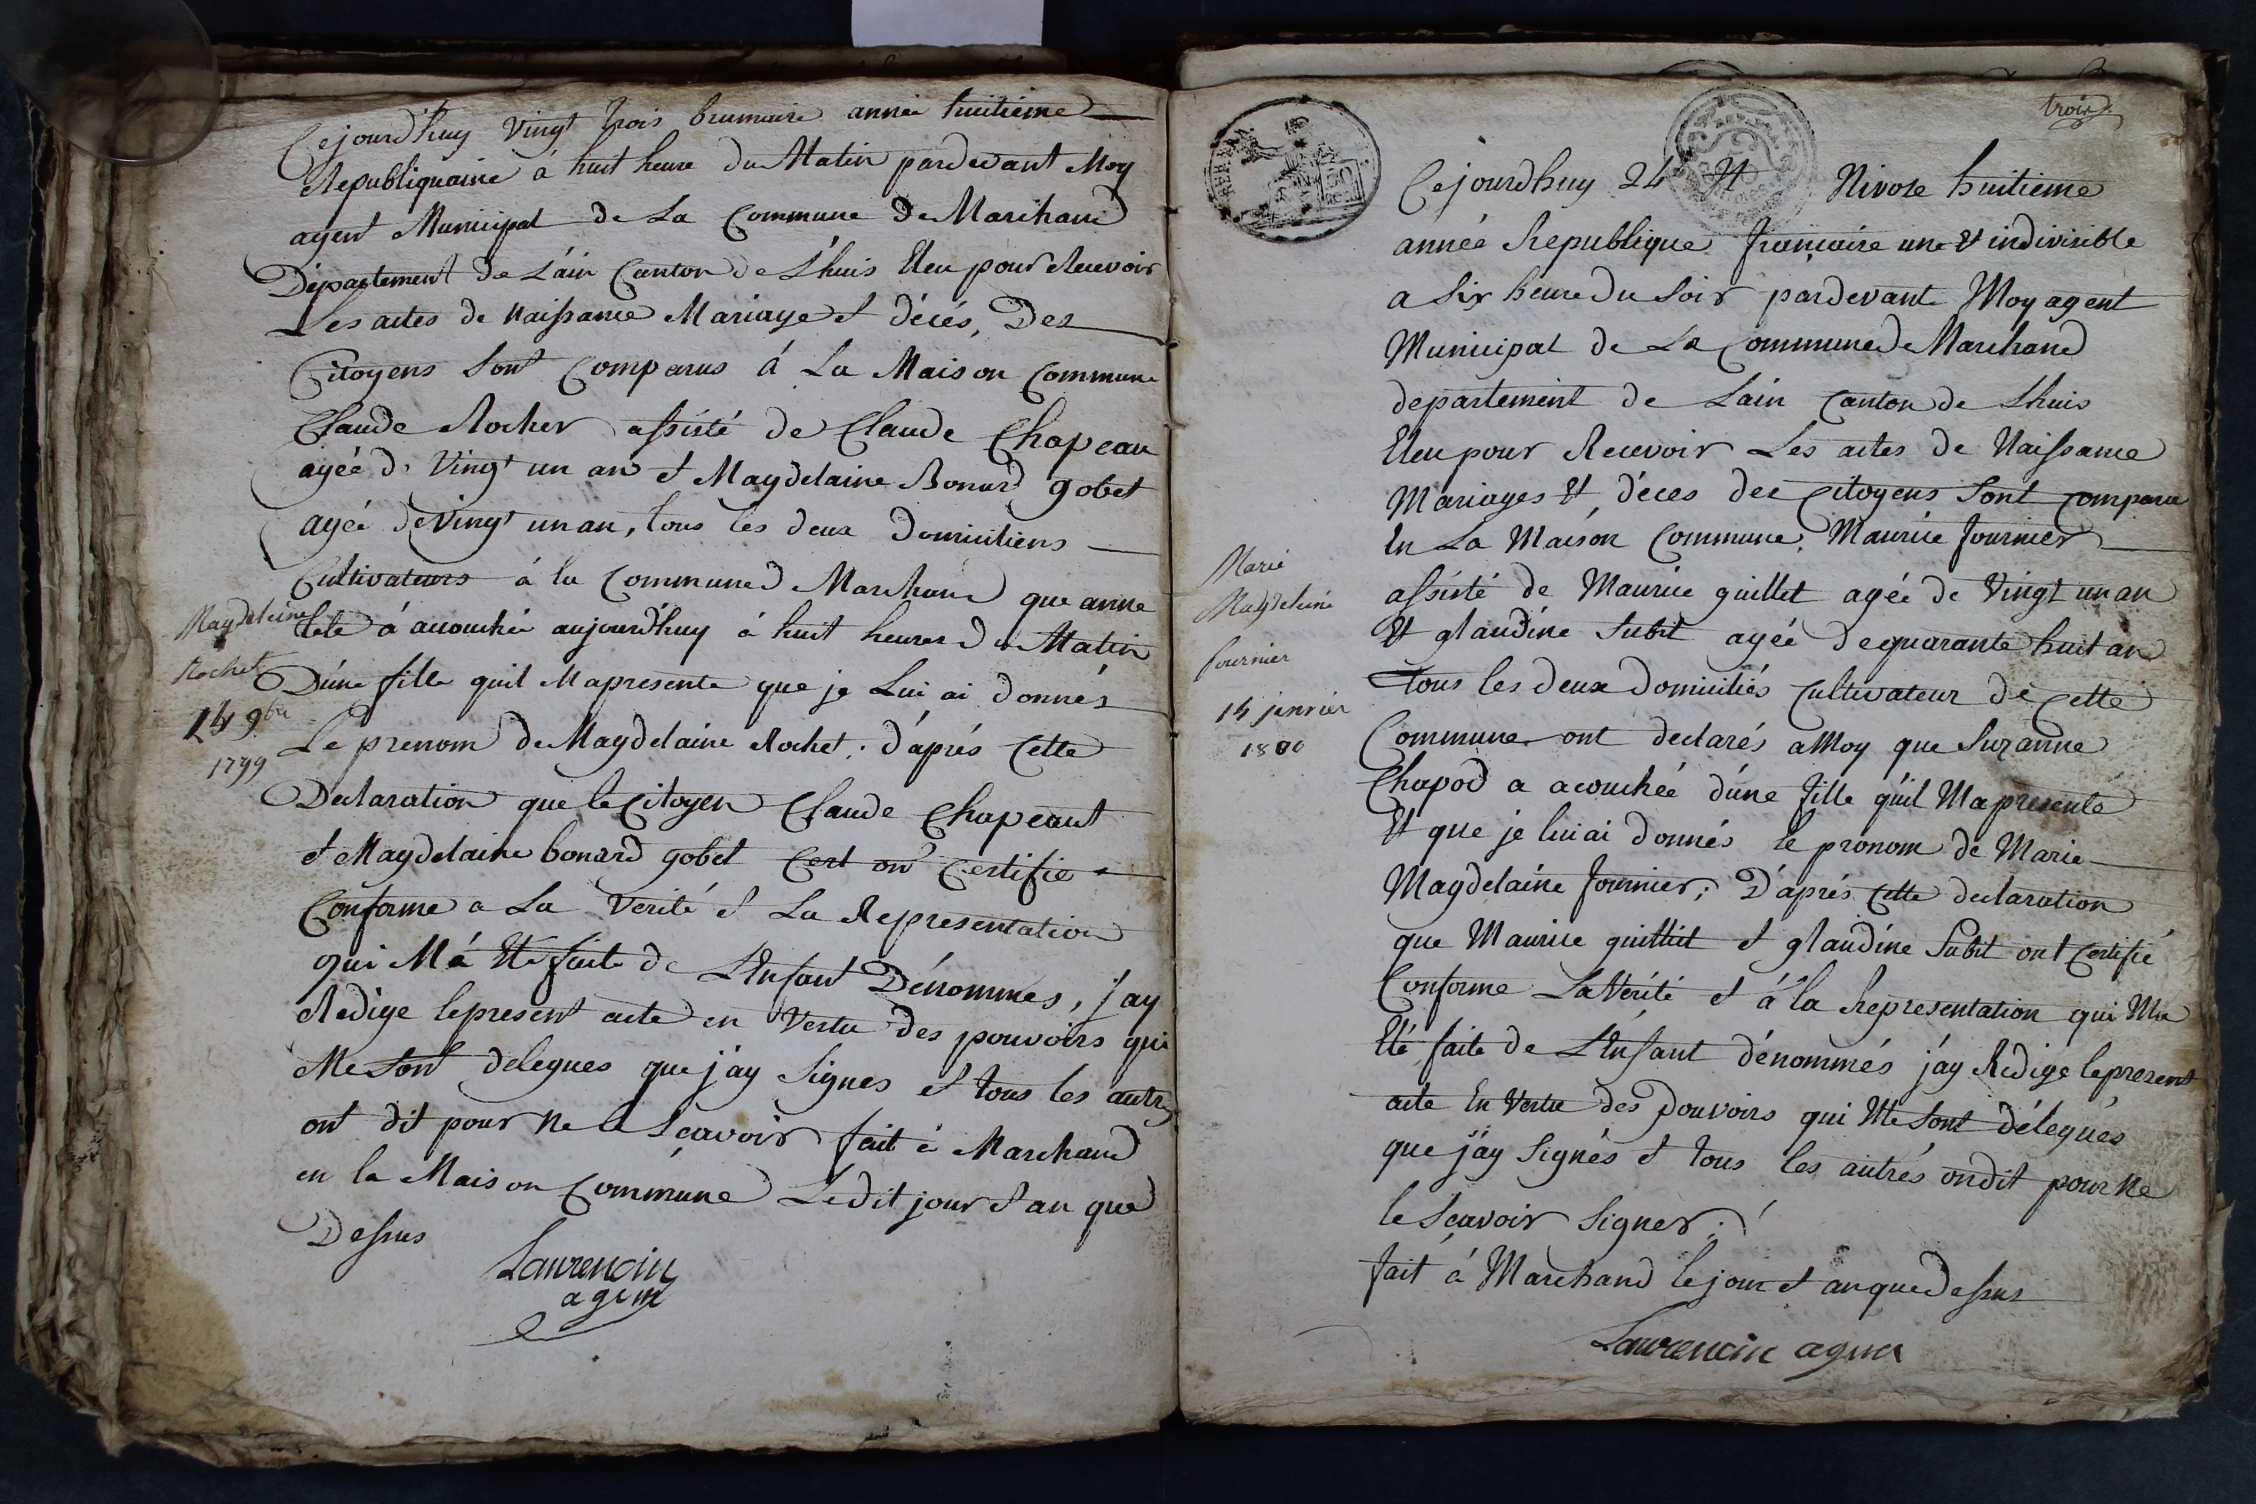 Cejourd'huy Vingt trois brumaire année huitieme
Republiquaine a huit heure du Matin pardevant Moy
agent Municipal de La Commune de Marchand
Département de L'ain Canton de Lhuis Eleu pour Recevoir
Les actes de Naissance Mariage et décés, Des
Citoyens Sont Comparus á La Maison Commune
Claude Rocher assisté de Claude Chapeau
agéé de Vingt un an et Magdelaine Bonard gobet
agéé de Vingt un an, tous les deux Domiciliens
Cultivateurs á la Commune de Marchand que anne
tete á acouchée aujourd'huy á huit heures du Matin
D'une fille quil Mapresenta que je Lui ai donnés
Le prenom de Magdelaine Rochet. d'aprés Cette
Declaration que le Citoyen Claude Chapeaut
et Magdelaine bonard gobet Cert on Certifie
Conforme a La Verité et La Representation
qui Má Eté faite de L'Enfant Dénommes, j'ay
Redige lepresent acte en Vertu des pouvoirs qui
Me Sont delegues que j'ay Signes et tous les autres
ont dit pour Ne le Scavoir fait á Marchand
en la Maison Commune Ledit jour et an que
Dessus
Laurencin
agent
Magdeleine
Rochet
14 9bre
1799
trois
50
Cejourd'huy 24 Nivose huitieme
année Republique françaire une et indivisible
a Six heure du Soir pardevant Moy agent
Municipal de La Commune de Marchand
departement de Lain Canton de Lhuis
Eleu pour Recevoir Les actes de Naissance
Mariages Et déces des Citoyens Sont comparu
En La Maison Commune. Maurice fournier
assisté de Maurice guillet agéé de Vingt un an
Et glaudine Subit agéé de quarante huit an
tous les deux Domiciliés Cultivateur de Cette
Commune ont declarés a Moy que Suzanne
Chapod a acouchéé d'une fille qu'il Mapresenté
Et que je lui ai donnés le pronom de Marie
Magdelaine fournier; D'aprés Cette declaration
que Maurice guilliet et glaudine Subit ont Certifié
Conforme La Vérité et á la Representation qui Ma
Eté faite de L'Enfant dénommés j'ay Redige lepresent
acte En Vertu des pouvoirs qui Me Sont délegués
que j'ay Signés et tous les autrés ondit pour Ne
le Scavoir Signer.
fait á Marchand le jour et an que Dessus
Laurencin agent
Marie
Magdeleine
fournier
14 janvier
1800